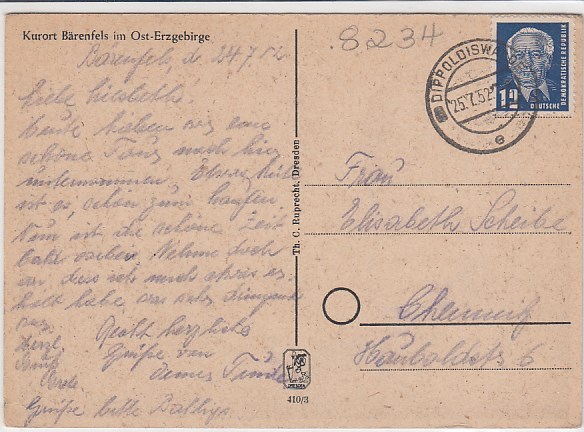 Kurort Bärenfels im Ost-Erzgebirge
8234
Bärenfels, d. 24.7.52
Liebe Liesbeth!
Heute haben wir eine
schöne Tour nach hier
unternommen. Etwas kühl
ist es, aber zum laufen
Nun ist die schöne Zeit
bald vorbei. Nehme doch
an, dass ich mich etwas er-
holt habe, war sehr dringend
Recht herzliche
Grüße von
Deiner
Grüße bitte
Th. C. Ruprecht, Dresden
410/3
DIPPOLDISWA
25.7.52
e
12
DEUTSCHE
DEMOKRATISCHE REPUBLIK
Frau
Elisabeth Scheibe
Chemnitz
Hauboldstr. 6